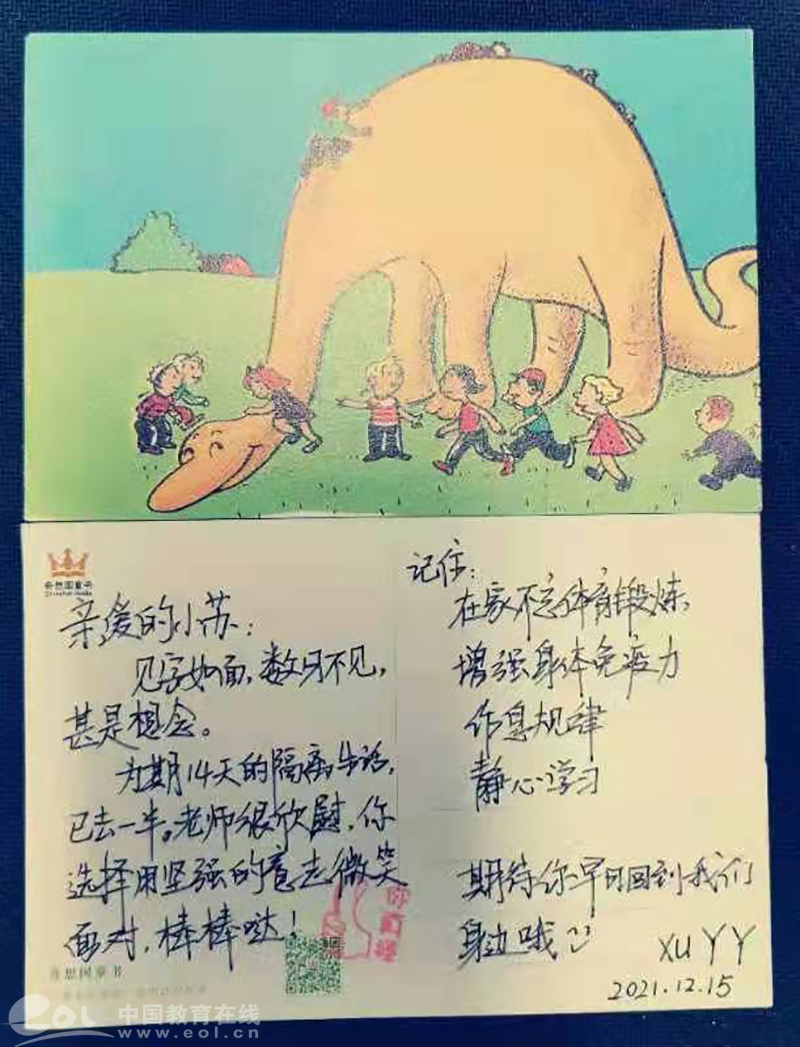 奇想国童书
亲爱的小苏：
见字如面，数日不见，
甚是想念。
为期14天的隔离生活，
已去一半。老师很欣慰，你
选择用坚强的意志微笑
面对，棒棒哒！
奇想国童书
记住：
在家不忘体育锻炼，
增强身体免疫力
作息规律
静心学习
期待你早日回到我们
身边哦
XU YY
2021.12.15
eol 中国教育在线
www.eol.cn